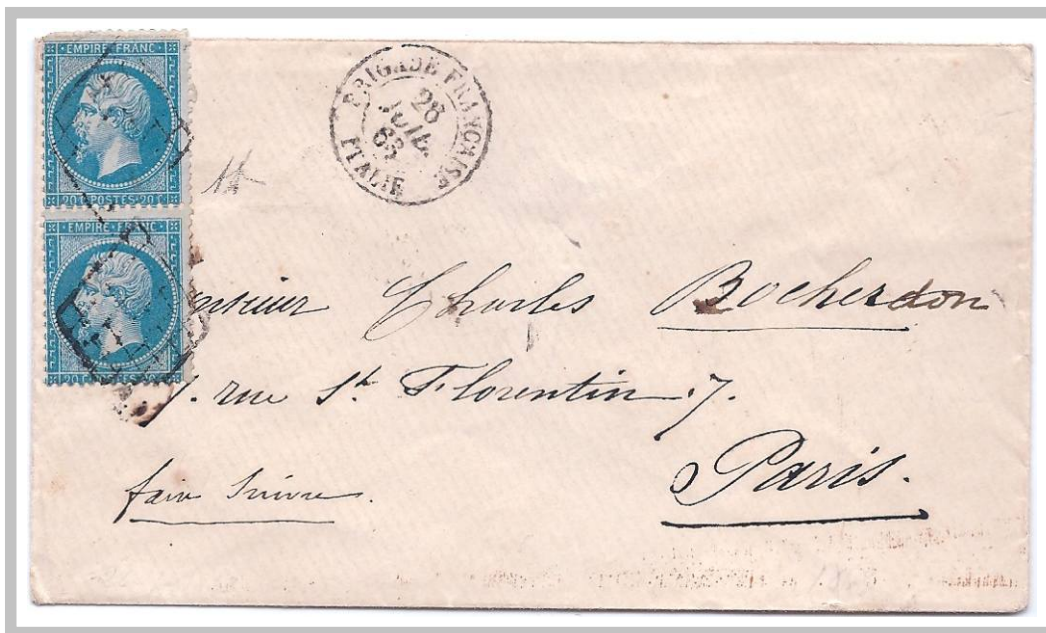 EMPIRE FRANC
20 C POSTES 20 C
EMPIRE FRANC
20 C POSTES 20 C
BRIGADE FRANÇAISE
28
JUIL.
63
ITALIE
Charles Bocherdon
rue St. Florentin. 7.
Paris.
faire suivre.